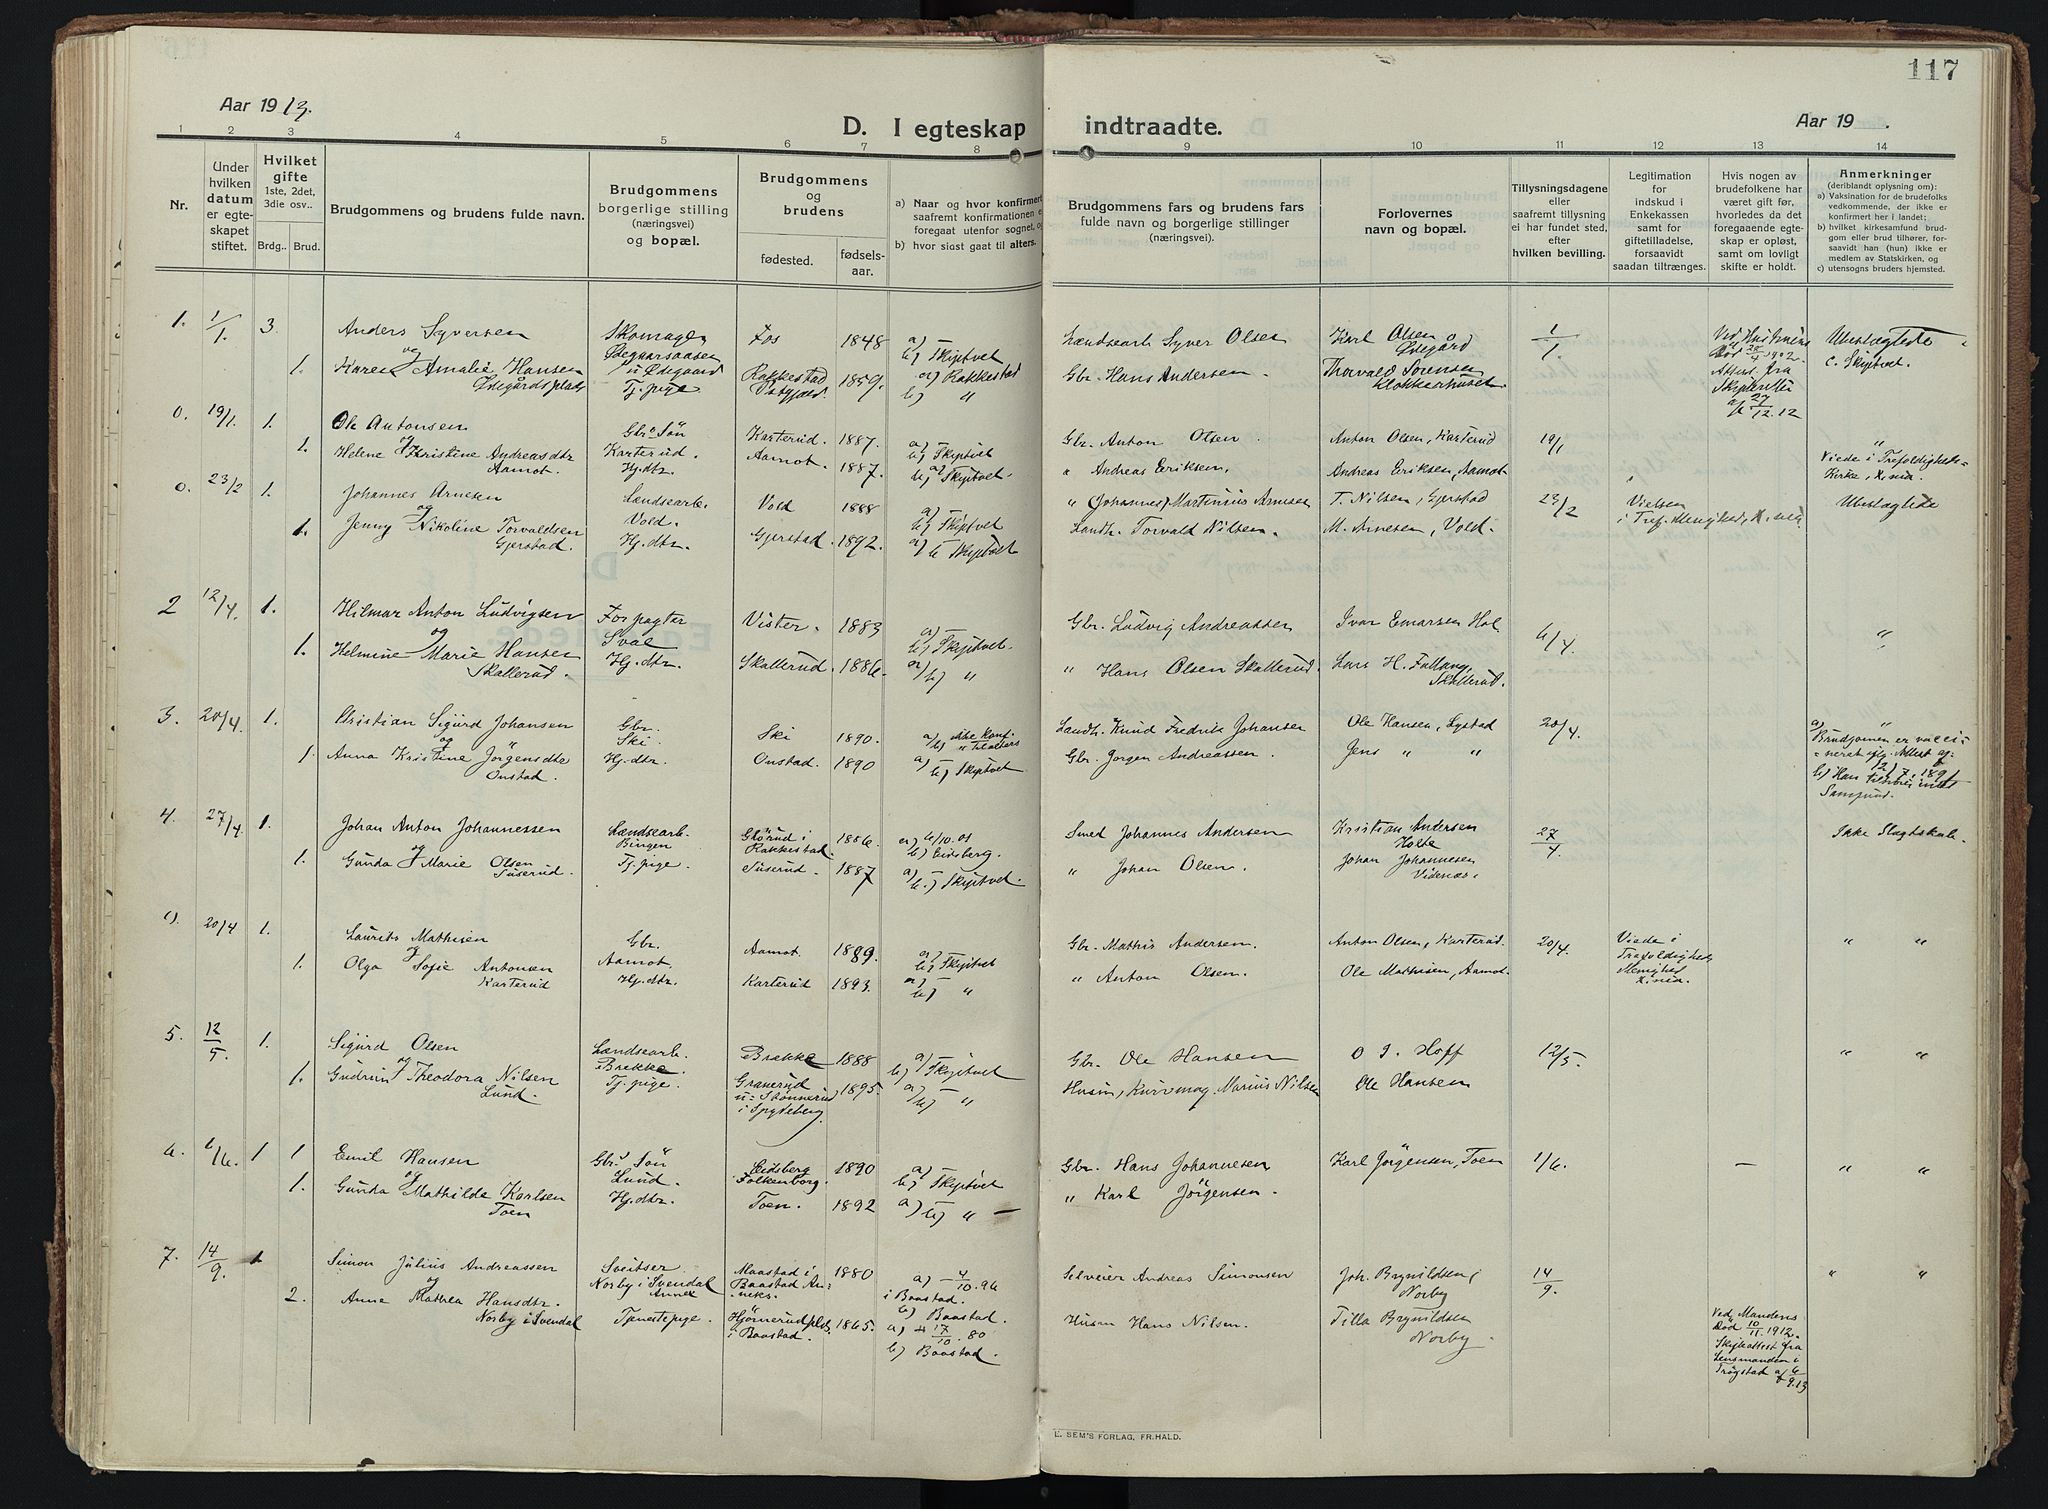 117
Aar 1913.
D. I egteskap indtraadte.
Aar 19 .
1 2 3 4 5 6 7 8 9 10 11 12 13 14
Nr.
Under hvilken datum er egteskapet stiftet.
Hvilket gifte 1ste, 2det, 3die osv..
Brdg.. Brud.
Brudgommens og brudens fulde navn.
Brudgommens borgerlige stilling (næringsvei) og bopæl.
Brudgommens og brudens
fødested.
fødsels-aar.
a) Naar og hvor konfirmert saafremt konfirmationen e foregaat utenfor sognet, og
b) hvor sidst gaat til alters.
Brudgommens fars og brudens fars fulde navn og borgerlige stillinger (næringsvei).
Forlovernes navn og bopæl.
Tillysningsdagene eller saafremt tillysning ei har fundet sted, efter hvilken bevilling.
Legitimation for indskud i Enkekassen samt for giftetilladelse, forsaavidt saadan tiltrænges.
Hvis nogen av brudefolkene har været gift før, hvorledes da det foregaaende egteskap er opløst, samt om lovligt skifte er holdt.
Anmerkninger (deriblandt oplysning om):
a) Vaksination for de brudefolks vedkommende, der ikke er konfirmert her i landet;
b) hvilket kirkesamfund brudgom eller brud tilhører, forsaavidt han (hun) ikke er medlem av Statskirken, og
c) utensogns bruders hjemsted.
1. 1/1. 3. Anders Syversen Skomager Fos 1848 a) Landsearb Syver Olsen Karl Olsen 1/1. Ubeslægtede
og Ødegaarsaasen b) Skiptvet Ødegård Død 25/4 1902. c. Skiptvet.
1. Karen Amalie Hansen u. Ødegaard Rakkestad 1859. a) Rakkestad Gbr. Hans Andersen. Thorvald Sørensen Attest. fra
Ødegårdsplads Tj. pige. Østfold. b) " Klokkerhuset. Skifteretten af 27/12.12
0. 19/1. 1. Ole Antonsen Gbr. Søn Karterud. 1887. a) Gbr. Anton Olsen. Anton Olsen, Karterud 19/1 "
1. Helene Kristine Andreasdtr Karterud. Aamot. 1887. b) Skiptvet " Andreas Eriksen. Andreas Eriksen, Aamot Viede i Trefoldigheds-
Aamot. Hj.dtr. Skiptvet. Kirke, X.nia.
0. 23/2 1. Johannes Arnesen Landsearb. Vold 1888 a) " (Johannes) Martinius Arnesen T. Nilsen, Gjerstad 23/2 Vielsen Ubeslægtede
og Vold. b) Skiptvet i Tref. Menighed, X.nia
1. Jenny Nikoline Torvaldsen Hj.dtr. Gjerstad. 1892. a) Landh. Torvald Nilsen. M. Arnesen, Vold.
Gjerstad. b Skiptvet
2 12/4. 1. Hilmar Anton Ludvigsen Forpagter Vister. 1883 a) Gbr. Ludvig Andreassen Ivar Emarsen Hol 6/4. "
og Sval b) Skiptvet.
1. Helmine Marie Hansen Hj.dtr. Skallerud. 1886. a) " Hans Olsen Skallerud. Lars H. Fallang,
Skallerud. b) " Skallerud.
3. 20/4. 1. Christian Sigurd Johansen Gbr. Ski 1890. a) ikke konf. Landh. Knud Fredrik Johansen Ole Hansen, Lystad 20/4. "
og Ski. b) " til alters a) Brudgomen er vacci-
1. Anna Kristine Jörgensdtr Hj.dtr. Onstad. 1890 a) Gbr. Jorgen Andreassen. Jens " " neret iflg. Attest af
Onstad. b) Skiptvet 12/7. 1891
b) Han tilhører intet Samfund.
4. 27/4. 1. Johan Anton Johannessen Landsearb. 1886. a) 6/10.01 Smed Johannes Andersen Kristian Andersen 27/4. Ikke Slagtskab.
og Bingen Rakkestad. b) Eidsberg. Holte
1. Gunda Marie Olsen Tj. pige. Suserud. 1887 a) " Johan Olsen. Johan Johannesen
Suserud. b.) Skiptvet. Videnær.
0. 20/4 1. Laurits Mathisen Gbr. Aamot. 1889. a) Gbr. Mathis Andersen. Anton Olsen, Karterud. 20/4. Viede i " "
og Aamot. b) Skiptvet Trefoldigheds
1. Olga Sofie Antonsen Hj.dtr. Karterud 1893. a) " Anton Olsen. Ole Mathisen, Aamot. Menighed
Karterud b) " X.nia.
5. 12/5. 1. Sigurd Olsen Landsearb. Brekke 1888 a) Gbr. Ole Hansen O J. Hoff 12/5. " "
og Brekke. b) Skiptvet
1. Gudrun Theodora Nilsen Tj. pige. Granerud 1895. a) Husm, Kurvmag. Marius Nilsen Ole Hansen
Lund. u. Stönnerud b) "
i Spydeberg.
6. 1/6. 1 1 Emil Hansen Gbr. Søn Eidsberg 1890 a) Gbr. Hans Johannesen Karl Jörgensen, Toen 1/6. — " "
og Lund. Folkenborg. b) Skiptvet
1. Gunda Mathilde Karlsen Hj.dtr. Toen. 1892 a) b) " — " Karl Jörgensen.
Toen
7. 14/9. 1 Simon Julius Andreassen Sveitser Maastad i 1880 a) 4/10. 96 Selveier Andreas Simonsen Joh. Brynildsen, 14/9. " "
og Norby i Svendal Baastad An- i Baastad. Norby
Annex neks. b) Baastad.
2. Anne Mathea Hansdtr. Tjenestepige. Hjörnerudplds. 1865. a) 17/10. 80 Husm Hans Nilsen. Tilla Brynildsen Ved Mandens
Norby i Svendal i Baastad. b) Baastad. Norby. Død 10/11. 1912.
Skifteattest fra
Lensmanden i
Trögstad af 6/9.13
E. SEM'S FORLAG, FR.HALD.